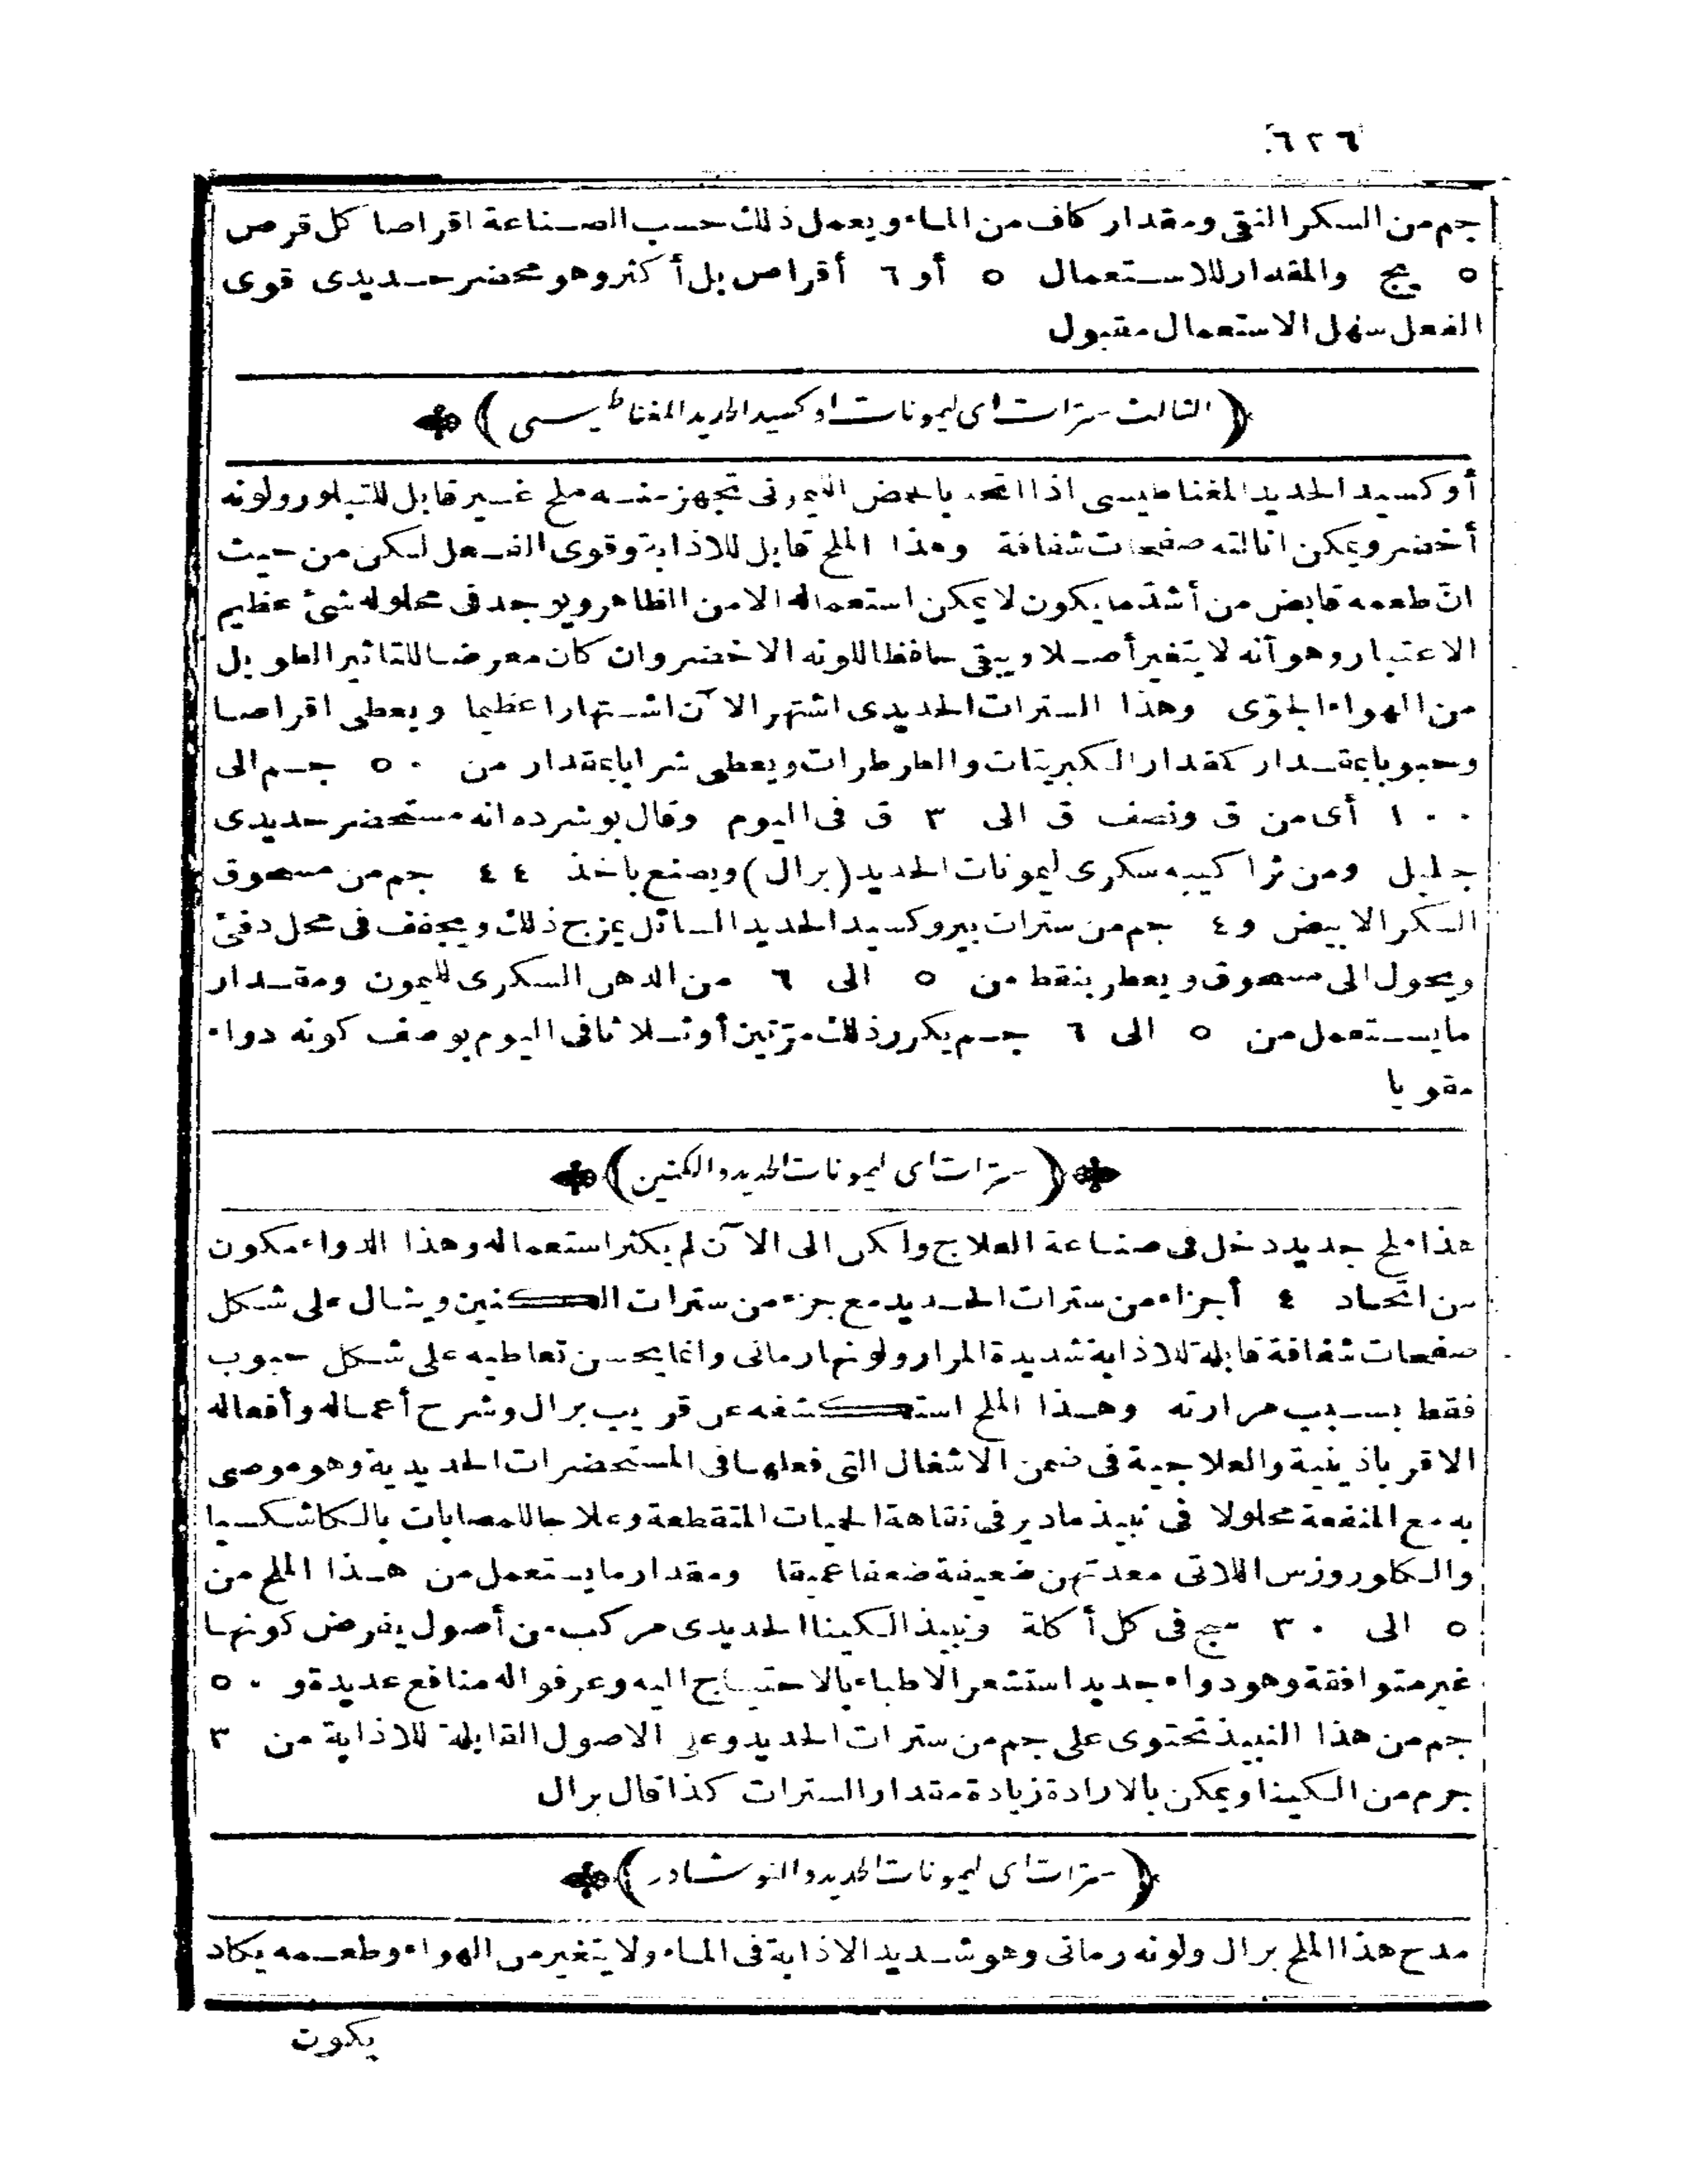 ٦٢٦
جم من السكر النقى ومقدار كاف من الماء ويعمل ذلك حسب الصناعة اقراصا كل قرص
٥ يج والمقدار للاستعمال ٥ أو ٦ أقراص بل أكثر وهو محضر حديدى قوى
الفعل سهل الاستعمال مقبول
(الثالث سترات اى ليمونات اوكسيد الحديد المغناطيسى)
أوكسيد الحديد المغناطيسى اذا اتحد بالحمض الليمونى تجهز منه ملح غير قابل للتبلور ولونه
أخضر ويمكن انالته صفيحات شفافة وهذا الملح قابل للاذابة وقوى الفعل لكن من حيث
ان طعمه قابض من أشد ما يكون لا يمكن استعماله الا من الظاهر ويوجد فى محلوله شئ عظيم
الاعتبار وهو آنه لا يتغير أصلا ويبقى حافظا للونه الاخضر وان كان معرضا للتاثير الطويل
من الهواء الجوّى وهذا السترات الحديدى اشتهر الآن اشتهارا عظيما ويعطى اقراصا
وحبوبا بمقدار كمقدار الكبريتات والطرطرات ويعطى شرابا بمقدار من ٥٠ جم الى
١٠٠ أى من ق ونصف ق الى ٣ ق فى اليوم وقال بوشرده انه مستحضر حديدى
جليل ومن تراكيبه سكرى ليمونات الحديد (برال) ويصنع باخذ ٤٤ جم من مسحوق
السكر الابيض و٤ جم من سترات بيروكسيد الحديد السائل يمزج ذلك ويجفف فى محل دفئ
ويحول الى مسحوق ويعطر بنقط من ٥ الى ٦ من الدهن السكرى لليمون ومقدار
ما يستعمل من ٥ الى ٦ جم يكرر ذلك مرّتين أو ثلاثا فى اليوم بوصف كونه دواء
مقويا
(سترات اى ليمونات الحديد والكنين)
هذا ملح جديد دخل فى صناعة العلاج ولكن الى الآن لم يكثر استعماله وهذا الدواء مكون
من اتحاد ٤ أجزاء من سترات الحديد مع جزء من سترات الكنين وينال على شكل
صفيحات شفافة قابلة للاذابة شديدة المرار ولونها رمانى وانما يحسن تعاطيه على شكل حبوب
فقط بسبب مرارته وهذا الملح استكشفه عن قريب برال وشرح أعماله وأفعاله
الاقرباذينية والعلاجية فى ضمن الاشغال التى فعلها فى المستحضرات الحديدية وهو موصى
به مع المنفعة محلولا فى نبيذ مادير فى نقاهة الحميات المتقطعة وعلاجا للمصابات بالكاشكسيا
والكلوروزس اللاتى معدتهن ضعيفة ضعفا عميقا ومقدار ما يستعمل من هذا الملح من
٥ الى ٣٠ سج فى كل أكلة ونبيذ الكينا الحديدى مركب من أصول يفرض كونها
غير متوافقة وهو دواء جديد استشعر الاطباء بالاحتياج اليه وعرفوا له منافع عديدة و ٥٠
جم من هذا النبيذ تحتوى على جم من سترات الحديد وعلى الاصول القابلة للاذابة من ٣
جرم من الكينا ويمكن بالارادة زيادة مقدار السترات كذا قال برال
(سترات اى ليمونات الحديد والنوشادر)
مدح هذا الملح برال ولونه رمانى وهو شديد الاذابة فى الماء ولا يتغير من الهواء وطعمه يكاد
يكون